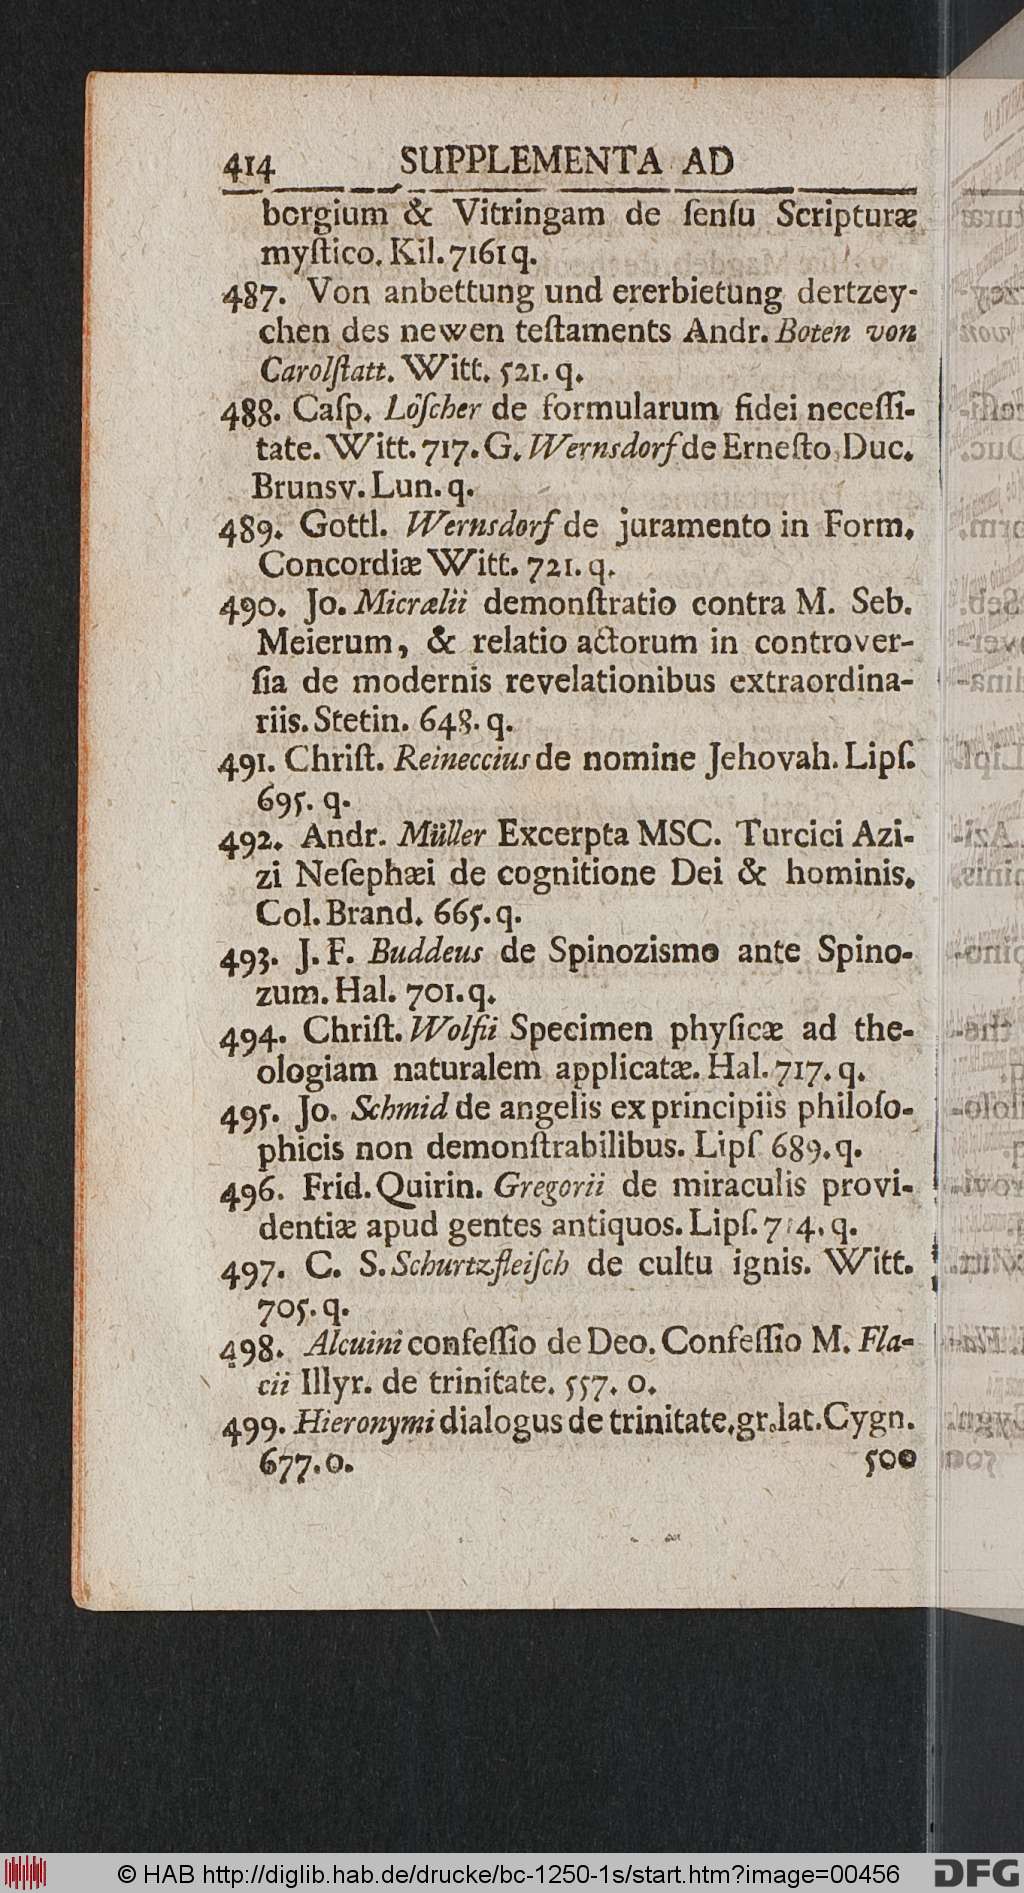 414 SUPPLEMENTA AD
borgium & Vitringam de ſenſu Scripturæ
myſtico. Kil. 7161 q.
487. Von anbettung und ererbietung dertzey-
chen des newen teſtaments Andr. Boten von
Carolſtatt. Witt. 521. q.
488. Caſp. Löſcher de formularum fidei neceſſi-
tate. Witt. 717. G. Wernsdorf de Erneſto Duc.
Brunsv. Lun. q.
489. Gottl. Wernsdorf de juramento in Form.
Concordiæ Witt. 721. q.
490. Jo. Micrælii demonſtratio contra M. Seb.
Meierum, & relatio actorum in controver-
ſia de modernis revelationibus extraordina-
riis. Stetin. 648. q.
491. Chriſt. Reineccius de nomine Jehovah. Lipſ.
695. q.
492. Andr. Müller Excerpta MSC. Turcici Azi-
zi Neſephæi de cognitione Dei & hominis.
Col. Brand. 665. q.
493. J. F. Buddeus de Spinozismo ante Spino-
zum. Hal. 701. q.
494. Chriſt. Wolfii Specimen phyſicæ ad the-
ologiam naturalem applicatæ. Hal. 717. q.
495. Jo. Schmid de angelis ex principiis philoſo-
phicis non demonſtrabilibus. Lipſ 689. q.
496. Frid. Quirin. Gregorii de miraculis provi-
dentiæ apud gentes antiquos. Lipſ. q.
497. C. S. Schurtzfleiſch de cultu ignis. Witt.
705. q.
498. Alcuini confeſſio de Deo. Confeſſio M. Fla-
cii Illyr. de trinitate. 557. o.
499. Hieronymi dialogus de trinitate. gr. lat. Cygn.
677. o. 500
© HAB http://diglib.hab.de/drucke/bc-1250-1s/start.htm?image=00456 DFG